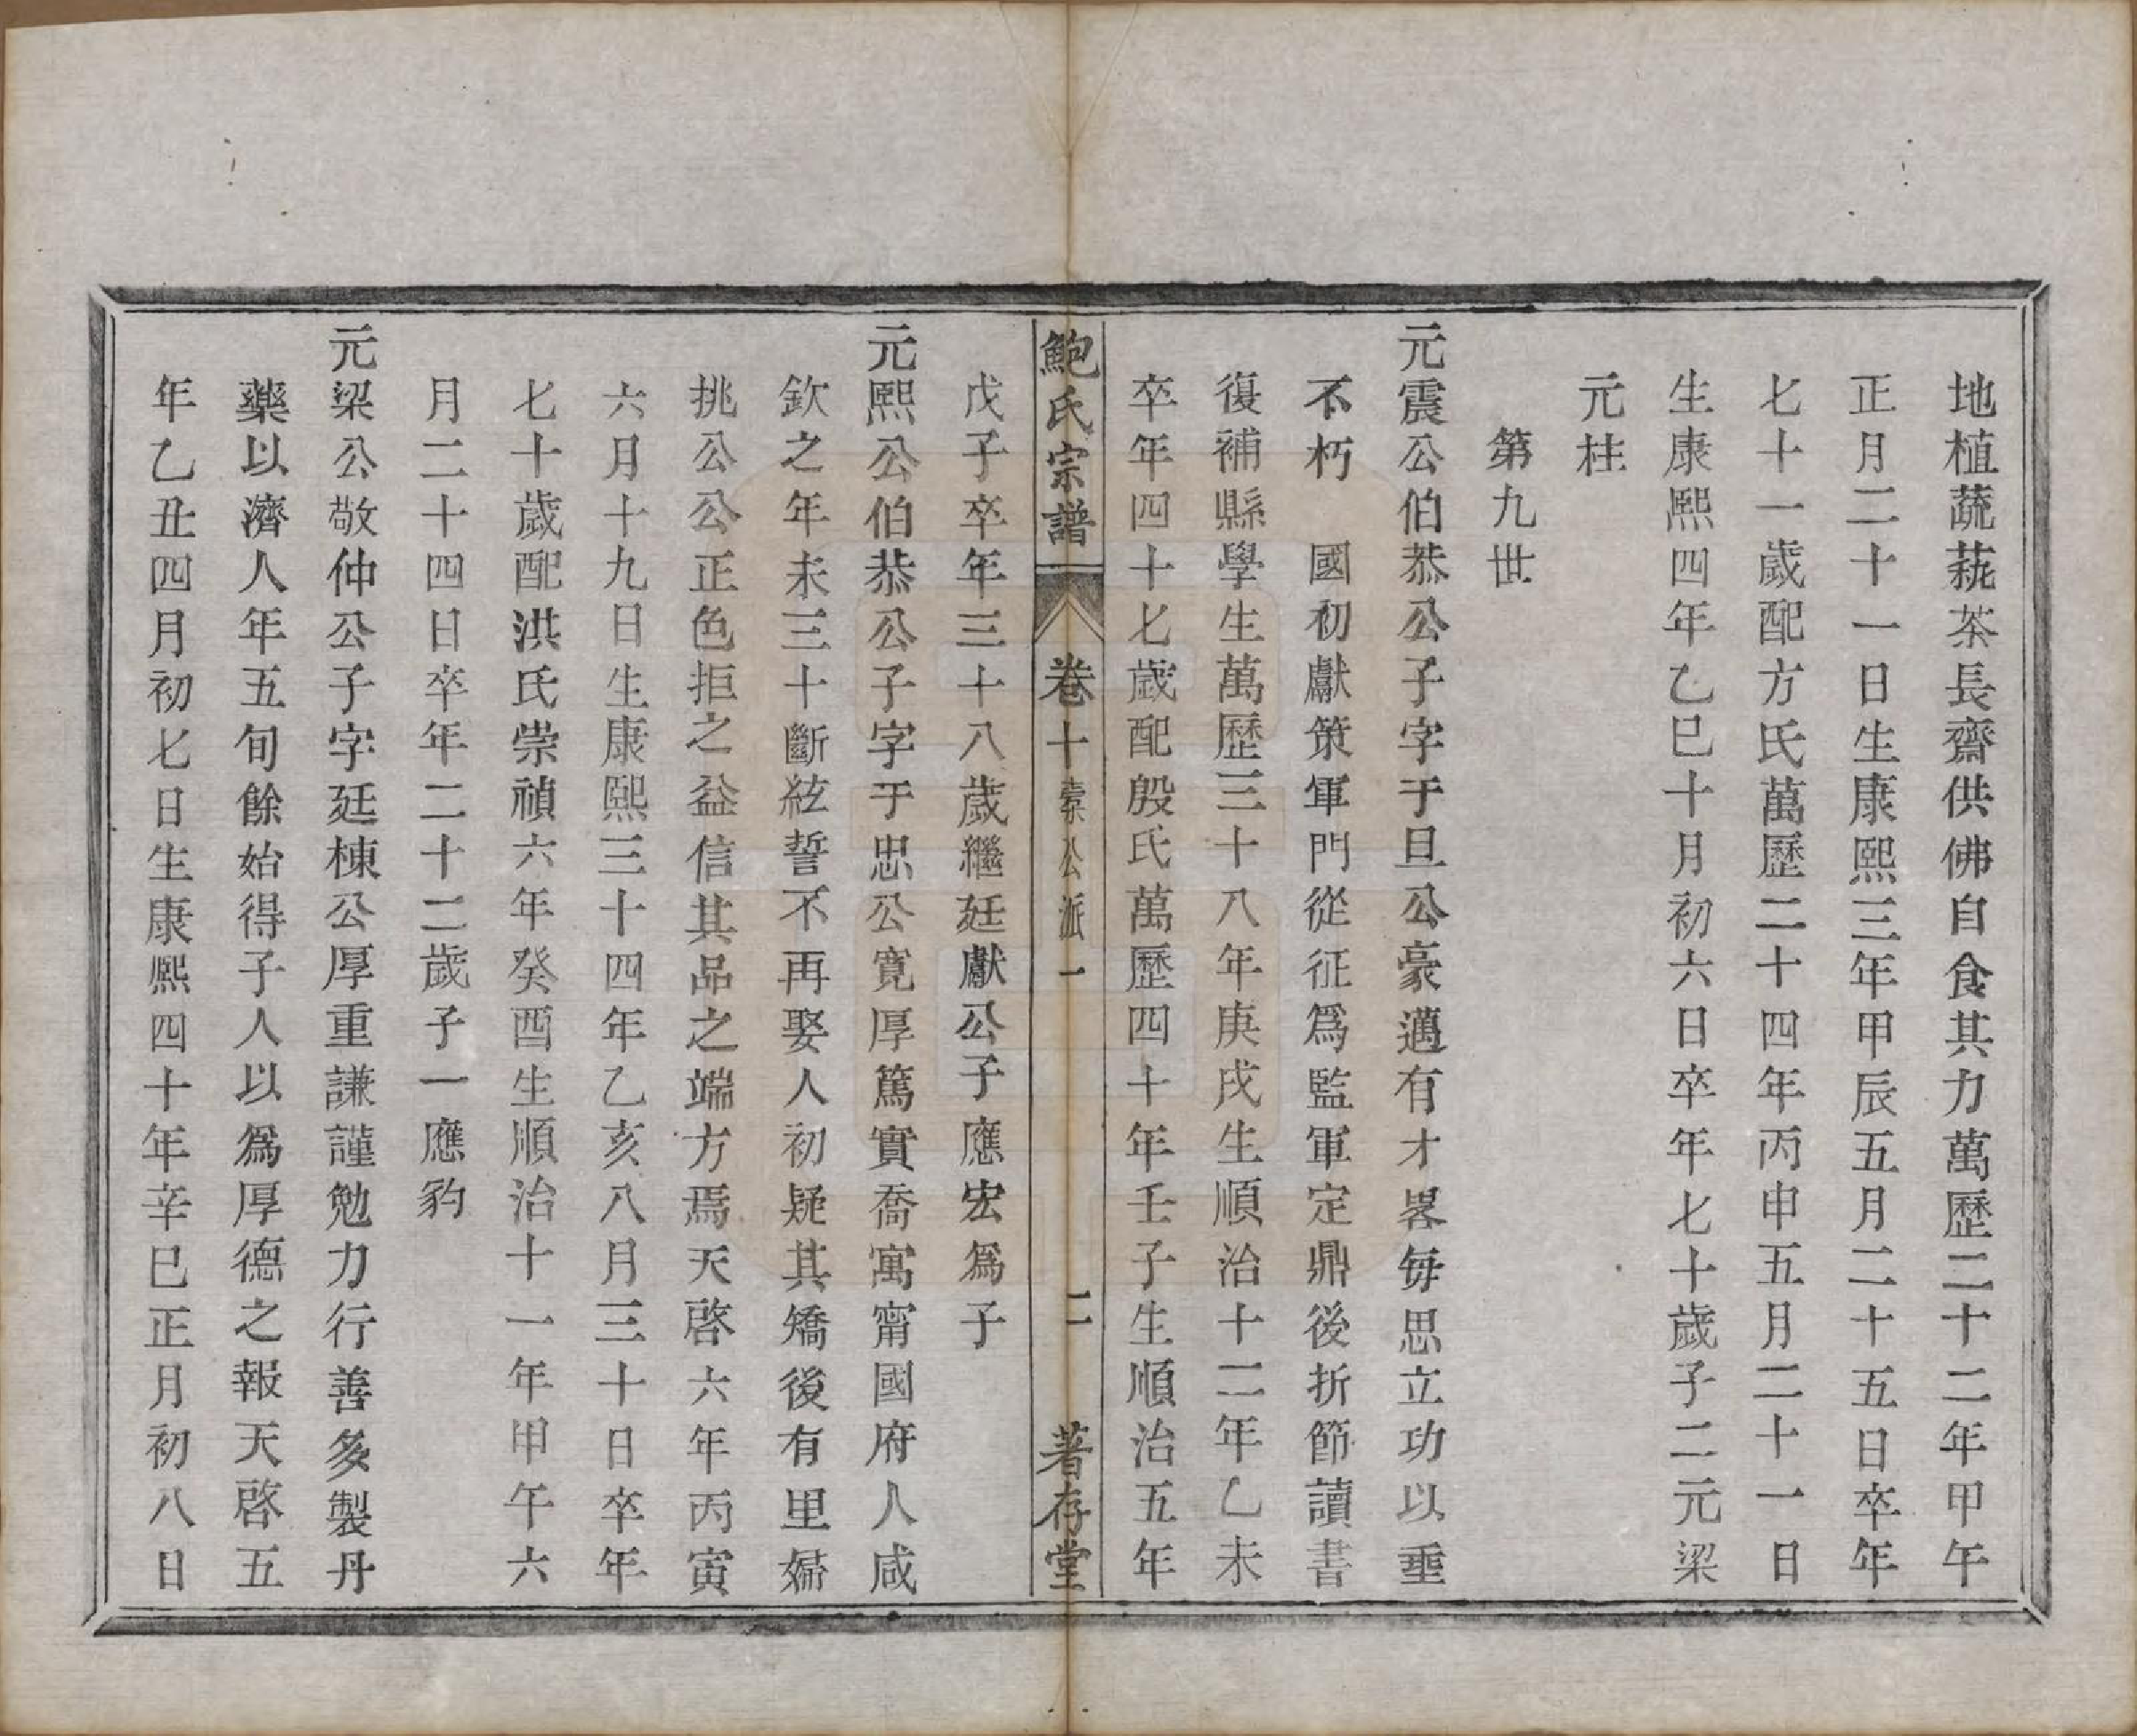 地植蔬蓺茶長齋供佛自食其力萬歷二十二年甲午
正月二十一日生康熙三年甲辰五月二十五日卒年
七十一歲配方氏萬歷二十四年丙申五月二十一日
生康熙四年乙巳十月初六日卒年七十歲子二元梁
元柱
第九世
元震公伯恭公子字于旦公豪邁有才畧每思立功以垂
不朽　國初獻策軍門從征爲監軍定鼎後折節讀書
復補縣學生萬歷三十八年庚戌生順治十二年乙未
卒年四十七歲配殷氏萬歷四十年壬子生順治五年
鮑氏宗譜　卷十　公派一　二　著存堂
戊子卒年三十八歲繼廷獻公子應宏爲子
元熙公伯恭公子字于忠公寬厚篤實喬寓甯國府人咸
欽之年未三十斷絃誓不再娶人初疑其矯後有里婦
挑公公正色拒之益信其品之端方焉天啓六年丙寅
六月十九日生康熙三十四年乙亥八月三十日卒年
七十歲配洪氏崇禎六年癸酉生順治十一年甲午六
月二十四日卒年二十二歲子一應豹
元梁公敬仲公子字廷棟公厚重謙謹勉力行善多製丹
藥以濟人年五旬餘始得子人以爲厚德之報天啓五
年乙丑四月初七日生康熙四十年辛巳正月初八日